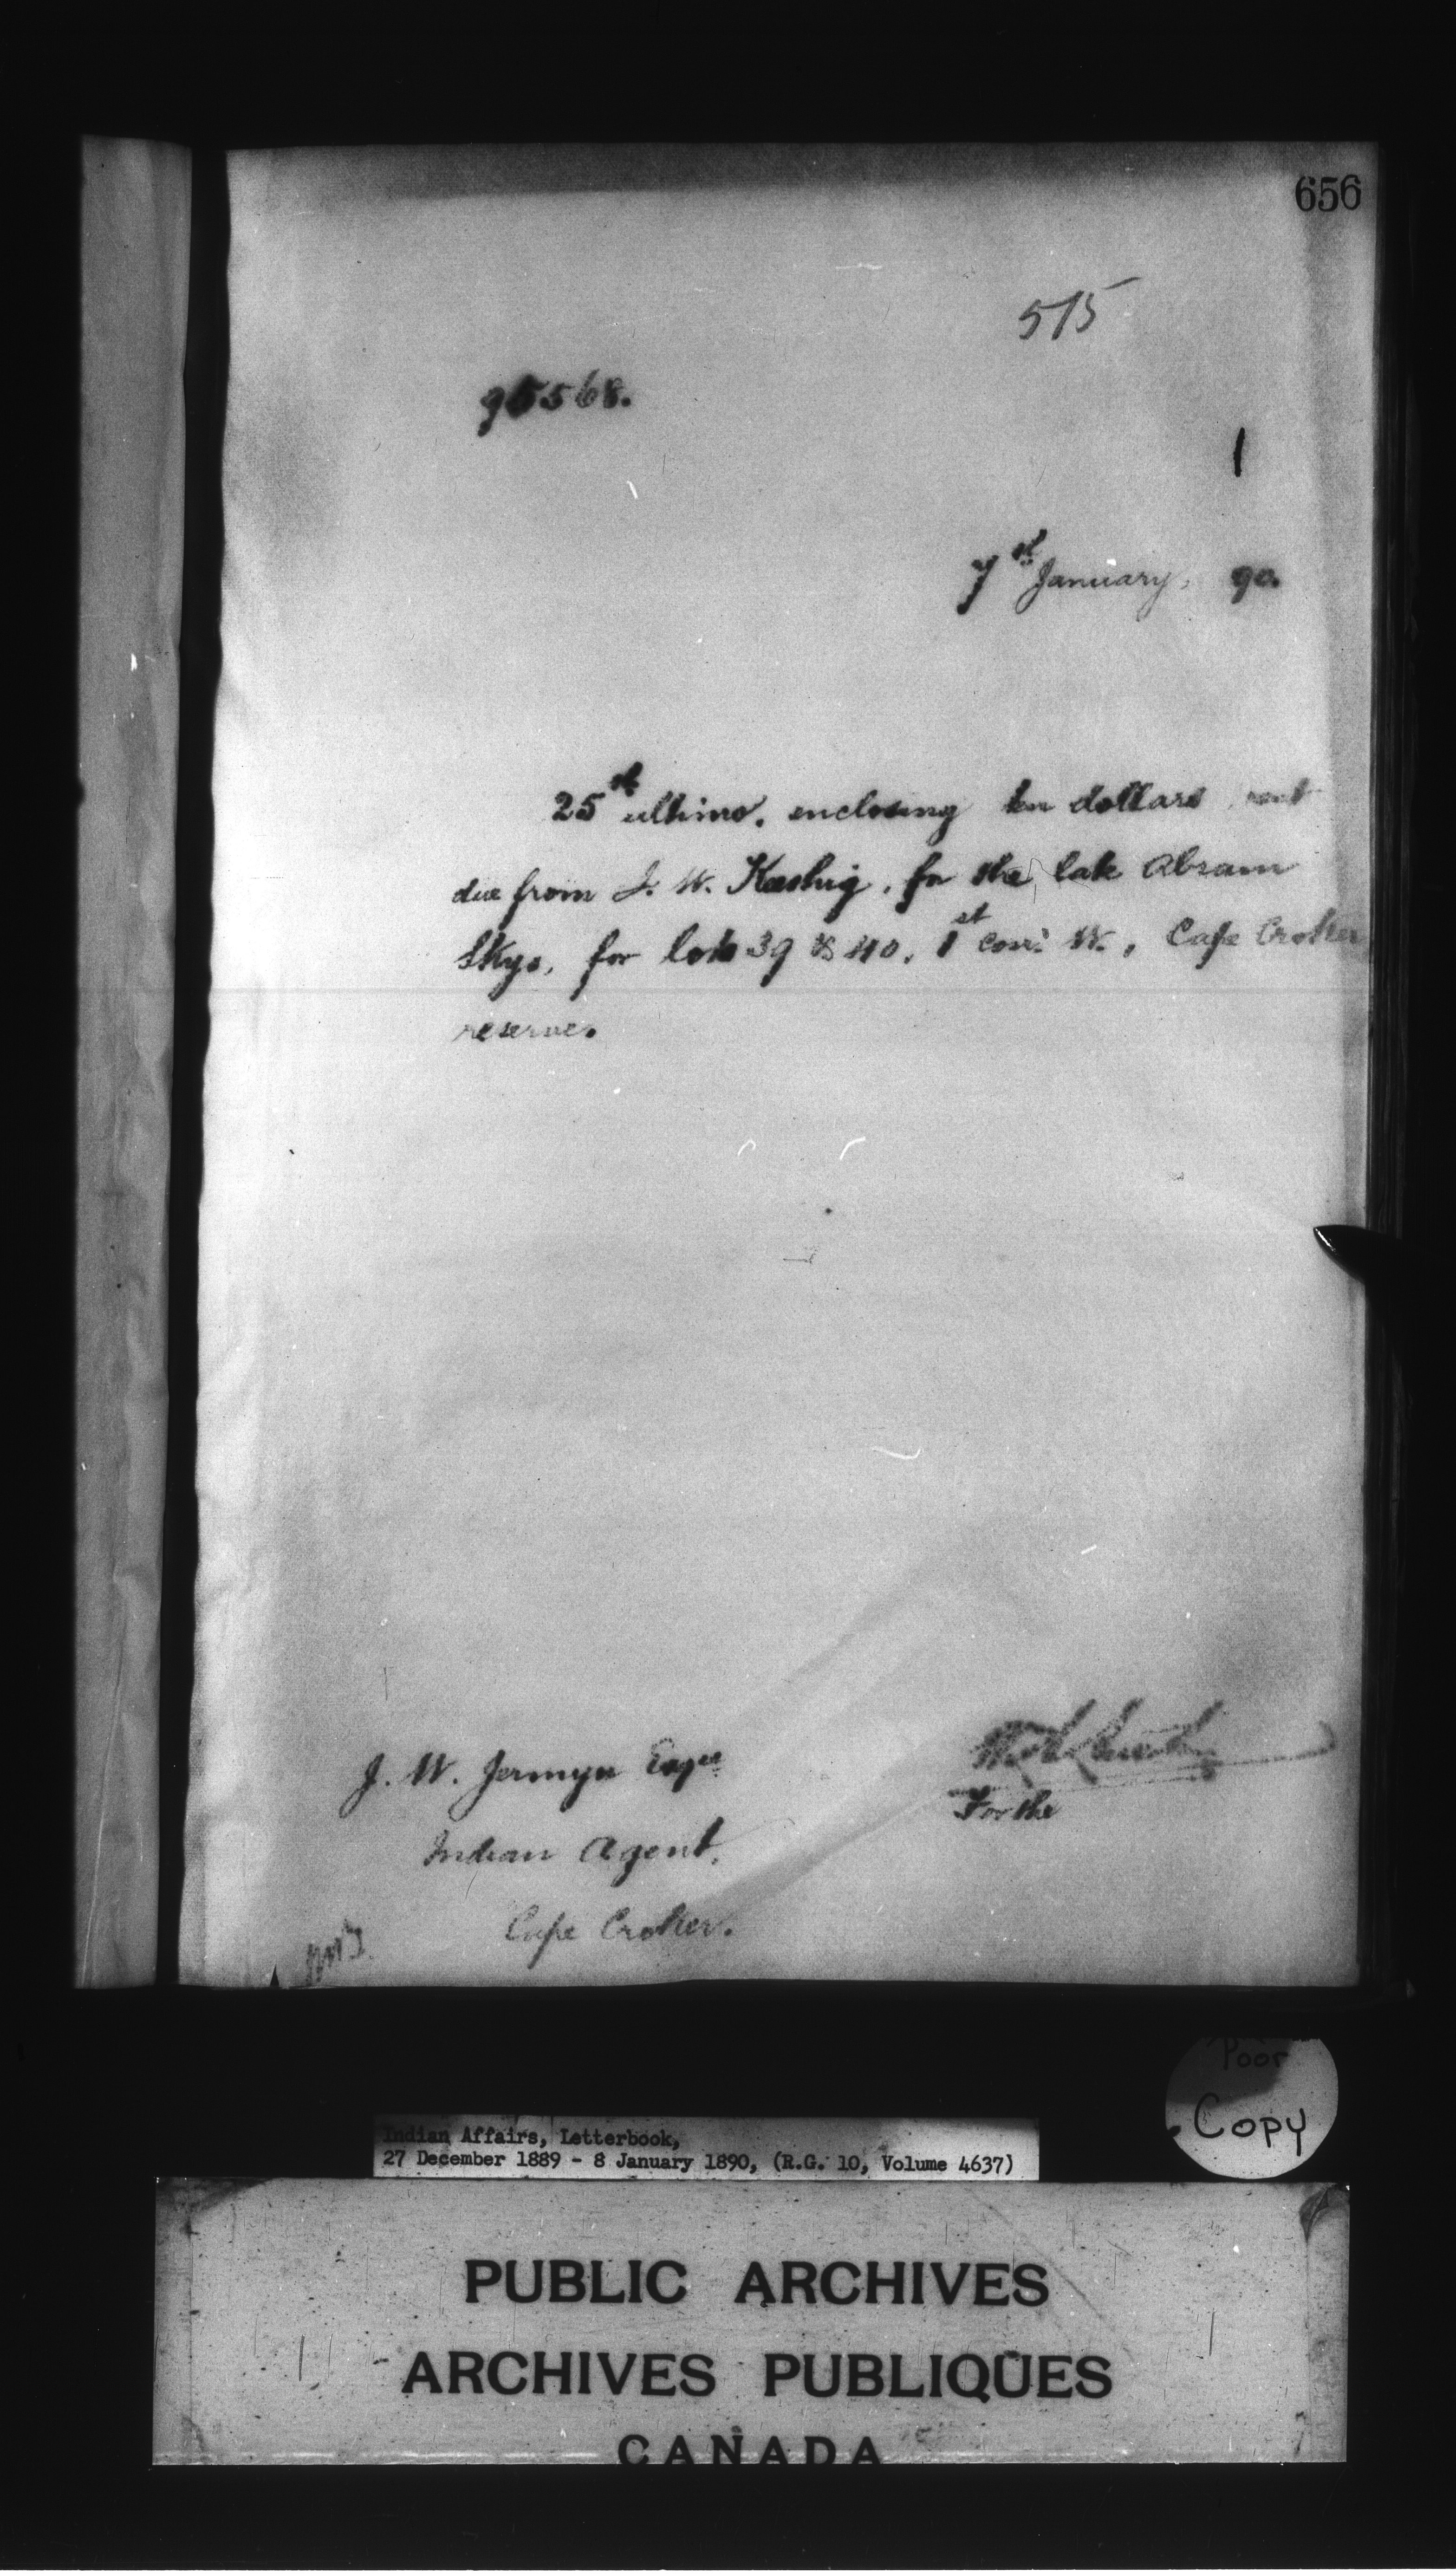 656
515
95568.
1
7th January, 90.
25th ultimo, enclosing ten dollars rent
due from J. W. Keeshig, for the late Abram
Skye, for lots 39 & 40, 1st con: W., Cape Croker
reserve.
J. W. Jermyn Esqre
For the
Indian Agent,
Cape Croker.
Poor
Copy
Indian Affairs, Letterbook,
27 December 1889 - 8 January 1890, (R.G. 10, Volume 4637)
PUBLIC ARCHIVES
ARCHIVES PUBLIQUES
CANADA